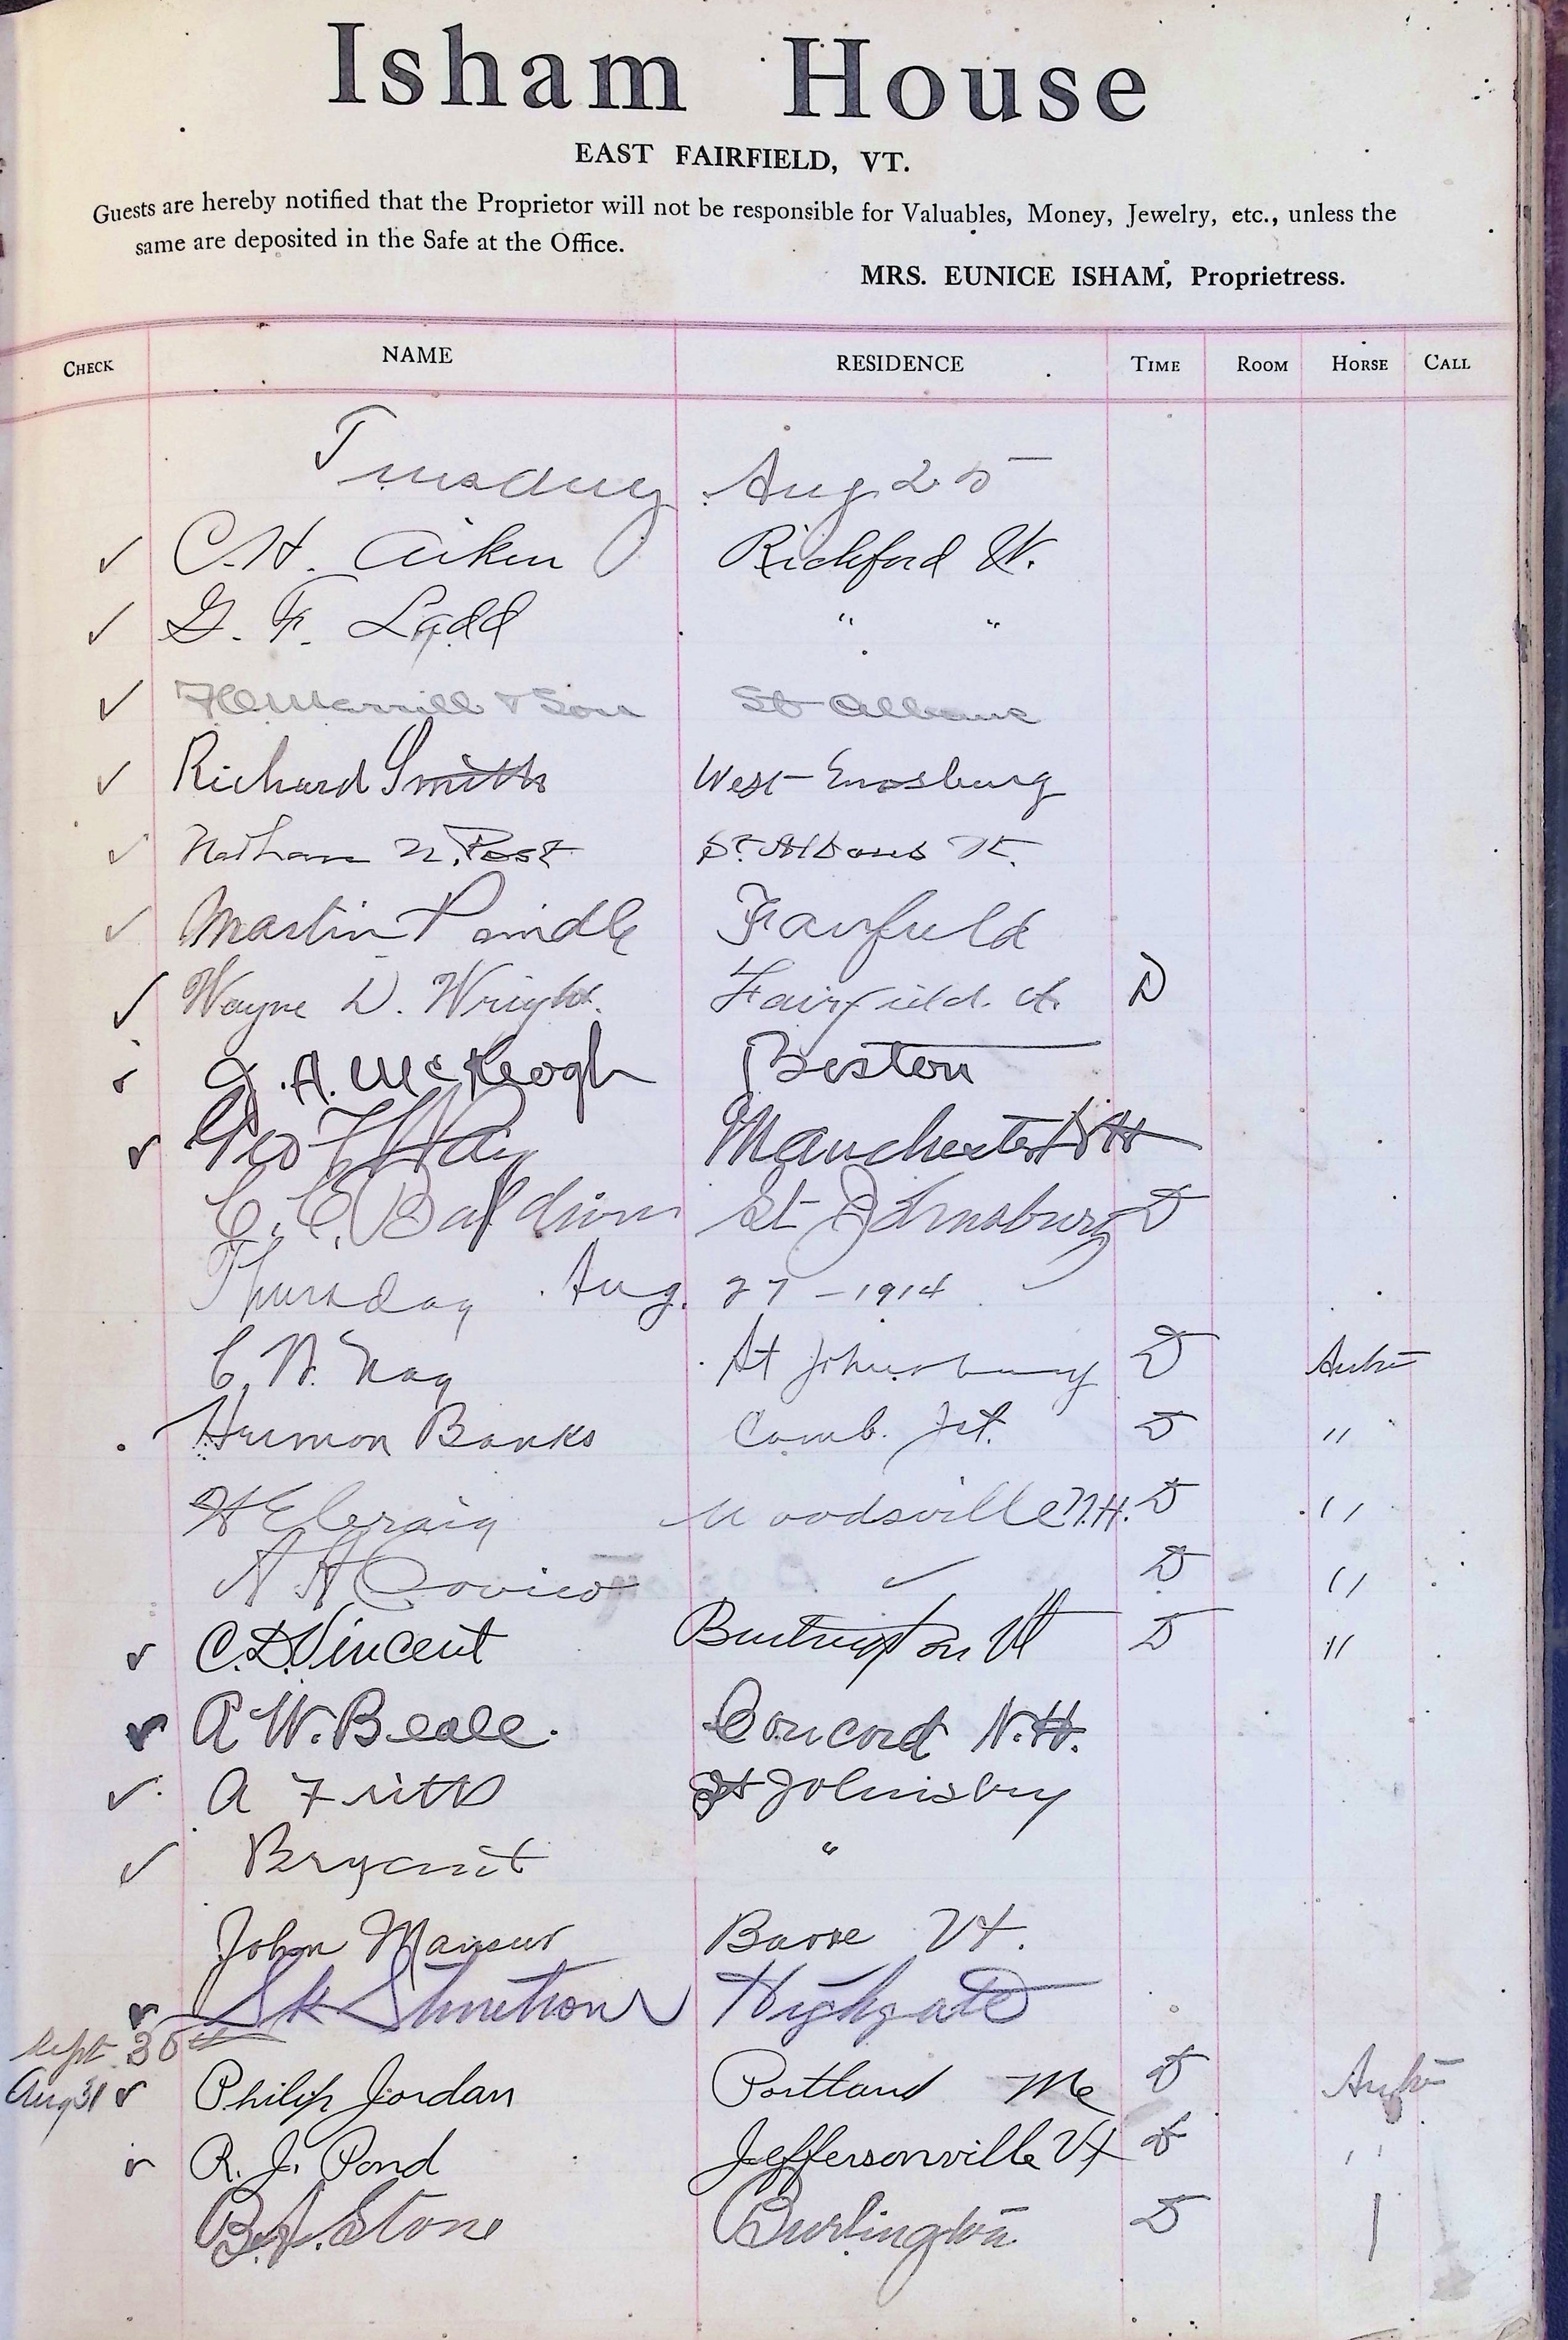 Isham House
EAST FAIRFIELD, VT.
Guests are hereby notified that the Proprietor will not be responsible for Valuables, Money, Jewelry, etc., unless the
same are deposited in the Safe at the Office.
MRS. EUNICE ISHAM, Proprietress.
CHECK NAME RESIDENCE TIME ROOM HORSE CALL
Tuesday Aug 25
✓ C. H. Aiken Richford Vt.
✓ G. F. Ladd " "
✓ Merrill & Son St Albans
✓ Richard Smith West Enosburg
✓ Nathan N. Post St. Albans Vt.
✓ Martin Fairfield
✓ Wayne D. Wright. Fairfield. Vt. D
✓ J. A. McKeogh Boston
✓ Geo Manchester NH
C. C. Baldwin St Johnsbury D
Thursday Aug. 27 - 1914
C. N. St Johnsbury D Auto
Harmon Banks Camb. Jct. D "
H E Craig Woodsville N.H. D "
A H ✓ D "
✓ C. D. Vincent Burlington Vt D "
✓ A W. Beale. Concord N.H.
✓ A St Johnsbury
✓ Bryant "
John Mansur Barre Vt.
✓ Highgate
Sept 30th
Aug 31 ✓ Philip Jordan Portland Me D Auto
✓ R. J. Pond Jeffersonville Vt D "
B. A. Stone Burlington D |